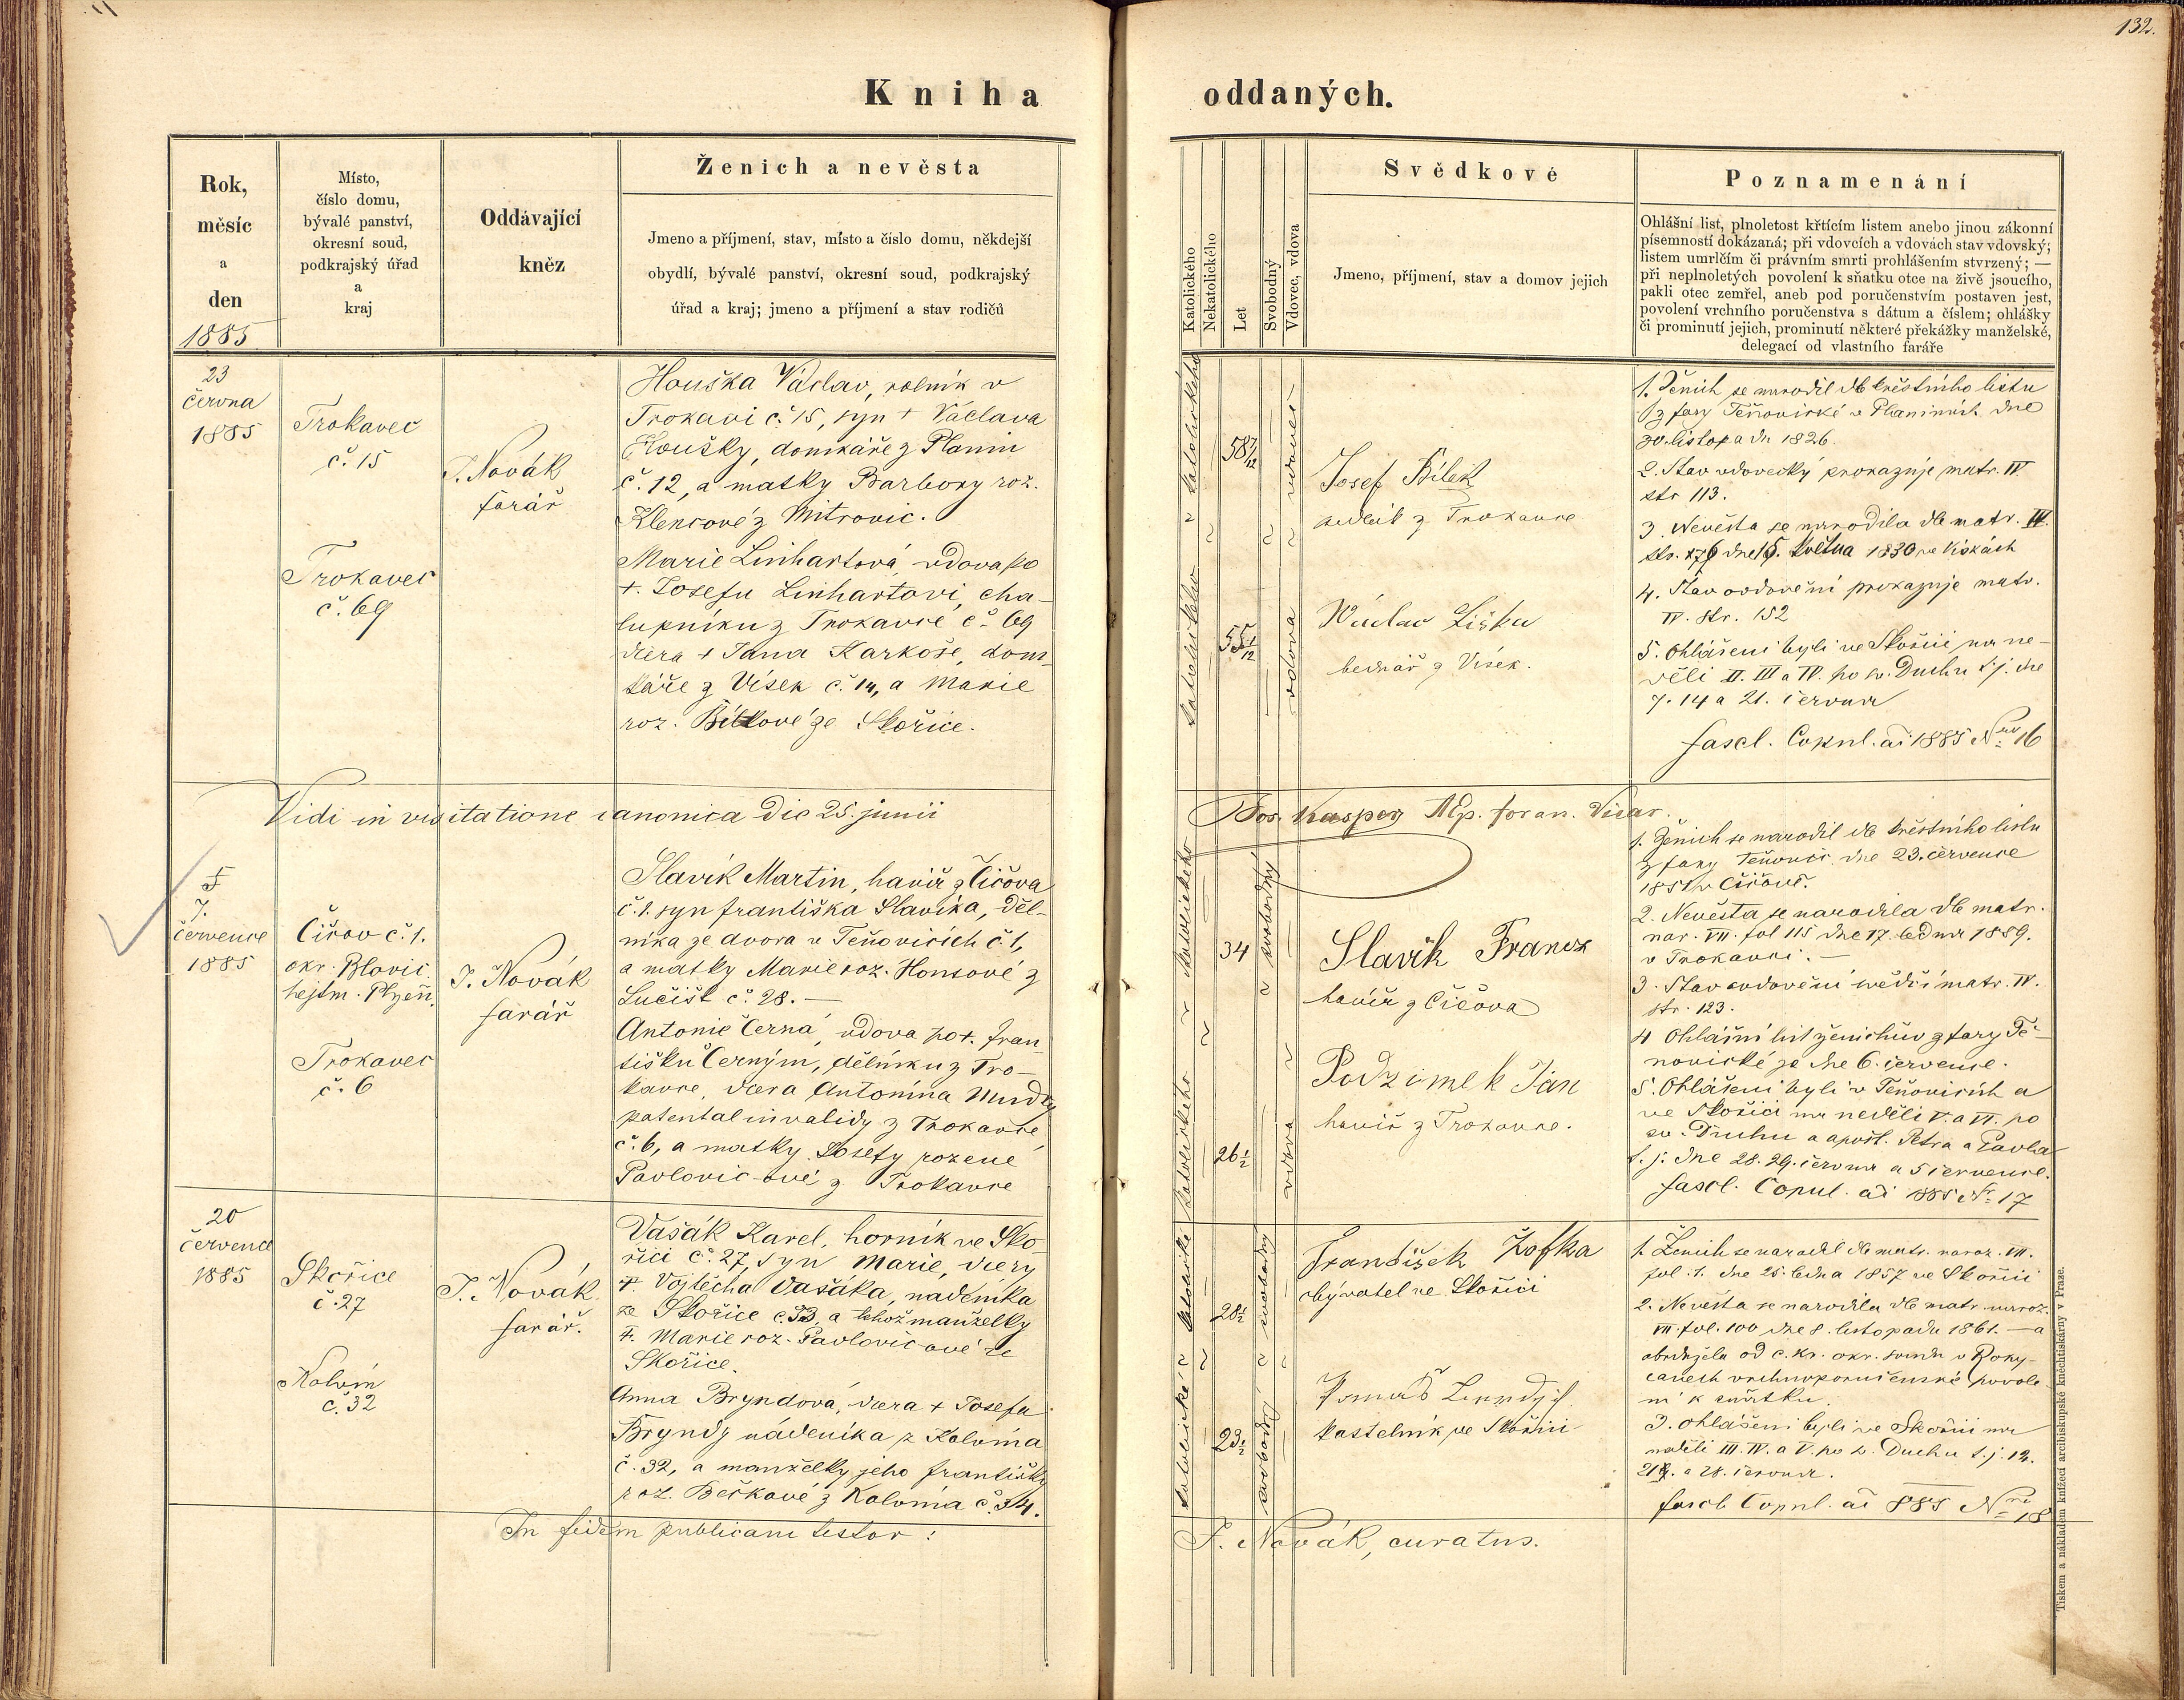 132.
Kniha oddaných.
Rok,
měsíc
a
den
1885
Místo,
číslo domu,
bývalé panství,
okresní soud,
podkrajský úřad
a
kraj
Oddávající
kněz
Ženich a nevěsta
Jmeno a příjmení, stav, místo a číslo domu, někdejší
obydlí, bývalé panství, okresní soud, podkrajský
úřad a kraj; jmeno a příjmení a stav rodičů
Katolického
Nekatolického
Let
Svobodný
Vdovec, vdova
Svědkové
Jmeno, příjmení, stav a domov jejich
Poznamenání
Ohlášní list, plnoletost křtícím listem anebo jinou zákonní
písemností dokázaná; při vdovcích a vdovách stav vdovský;
listem umrlčím či právním smrti prohlášením stvrzený; —
při neplnoletých povolení k sňatku otce na živě jsoucího,
pakli otec zemřel, aneb pod poručenstvím postaven jest,
povolení vrchního poručenstva s dátum a číslem; ohlášky
či prominutí jejich, prominutí některé překážky manželské,
delegací od vlastního faráře
23
června
1885
Trokavec
č. 15
Trokavec
č. 69
J. Novák
farář
Houška Václav, rolník v
Trokavci č. 15, syn + Václava
Houšky, domkáře z Planin
č. 12, a matky Barbory roz.
Klencové z Mitrovic.
Marie Linhartová, vdova po
+. Josefu Linhartovi, cha-
lupníku z Trokavce č. 69
dcera + Jana Karkoše, dom-
káře z Vísek č. 14, a Marie
roz. Bílkové ze Skořice.
katolického
katolického
58 7/12
55 1/12
vdovec
vdova
Josef Bílek
sedlák z Trokavce
Václav Liška
bednář z Vísek.
1. Ženich se narodil dle křestního listu
z fary Těňovické v Planinách dne
30. listopadu 1826.
2. Stav vdovecký prokazuje matr. IV
str 113.
3. Nevěsta se narodila dle matr. IV.
dne 15. května 1830 ve Vískách
4. Stav ovdovění prokazuje matr.
IV. str. 152
5. Ohlášeni byli ve Skořici na ne-
děli II. III a IV. po sv. Duchu t. j. dne
7. 14 a 21. června
fascl. Copul. ai 1885 Nro 16
Vidi in visitatione canonica die 25. junii
Jos. Kasper Mp. foran. Vicar.
7.
července
1885
Čičov č. 1.
okr. Blovic.
hejtm. Plzeň.
Trokavec
č. 6
J. Novák
farář
Slavík Martin, havíř z Čičova
č. 1. syn Františka Slavíka, děl-
níka ze dvora v Těňovicích č. 1,
a matky Marie roz. Honsové z
Lučišt č. 28. —
Antonie Černá, vdova po +. Fran-
tišku Černým, dělníku z Tro-
kavce, dcera Antonína Mudry
patental invalidy z Trokavce
č. 6, a matky Josefy rozené
Pavlovic-ové z Trokavce
katolického
katolického
34
26½
svobodný
vdova
Slavík Francz
havíř z Čičova
Podzimek Jan
havíř z Trokavce.
1. Ženich se narodil dle křestního listu
z fary Těňovic. dne 23. července
1851 v Čičově.
2. Nevěsta se narodila dle matr.
nar. VII. fol 115 dne 17. ledna 1859.
v Trokavci. —
3. Stav ovdovění svědčí matr. IV.
str. 123.
4 Ohlášní list ženichův z fary Tě-
novické je dne 6. července.
5. Ohlášeni byli v Těňovicích a
ve Skořici na neděli V. a VI. po
sv. Duchu a apošt. Petra a Pavla
t. j. dne 28. 29. června a 5 července.
fascl. Copul. ai 1885 N. 17
20
července
1885
Skořice
č. 27
Kolvín
č. 32
J. Novák
farář.
Vašák Karel, horník ve Sko-
řici č. 27, syn Marie, dcery
+. Vojtěcha Vašáka, nádeníka
ze Skořice a téhož manželky
+. Marie roz. Pavlovic-ové ze
Skořice.
Anna Bryndová, dcera + Josefa
Bryndy nádeníka z Kolvína
č. 32, a manželky jeho Františky
roz. Beškové z Kolvína č. 34.
katolické
katolické
28½
23½
svobodný
svobodná
František Žofka
obyvatel ve Skořici
Tomáš
kostelník ve Skořici
1. Ženich se narodil dle matr. naroz. VII.
fol. 1. dne 25. ledna 1857 ve Skořici
2. Nevěsta se narodila dle matr. naroz.
VII. fol. 100 dne 8. listopadu 1861. — a
obdržela od c. kr. okr. soudu v Roky-
canech vrchnoporučenské povole-
ní k sňatku.
3. Ohlášeni byli ve Skořici na
neděli III. IV. a V. po sv. Duchu t. j. 14.
21. a 28. června.
fascl. Copul. ai 885 Nro 18
In fidem publicam testor:
J. Novák, curatus.
Tiskem a nákladem knížecí arcibiskupské knihtiskárny v Praze.